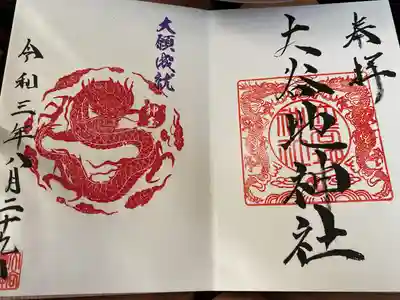 奉拝
大谷地神社
大願成就
令和三年八月二十九日